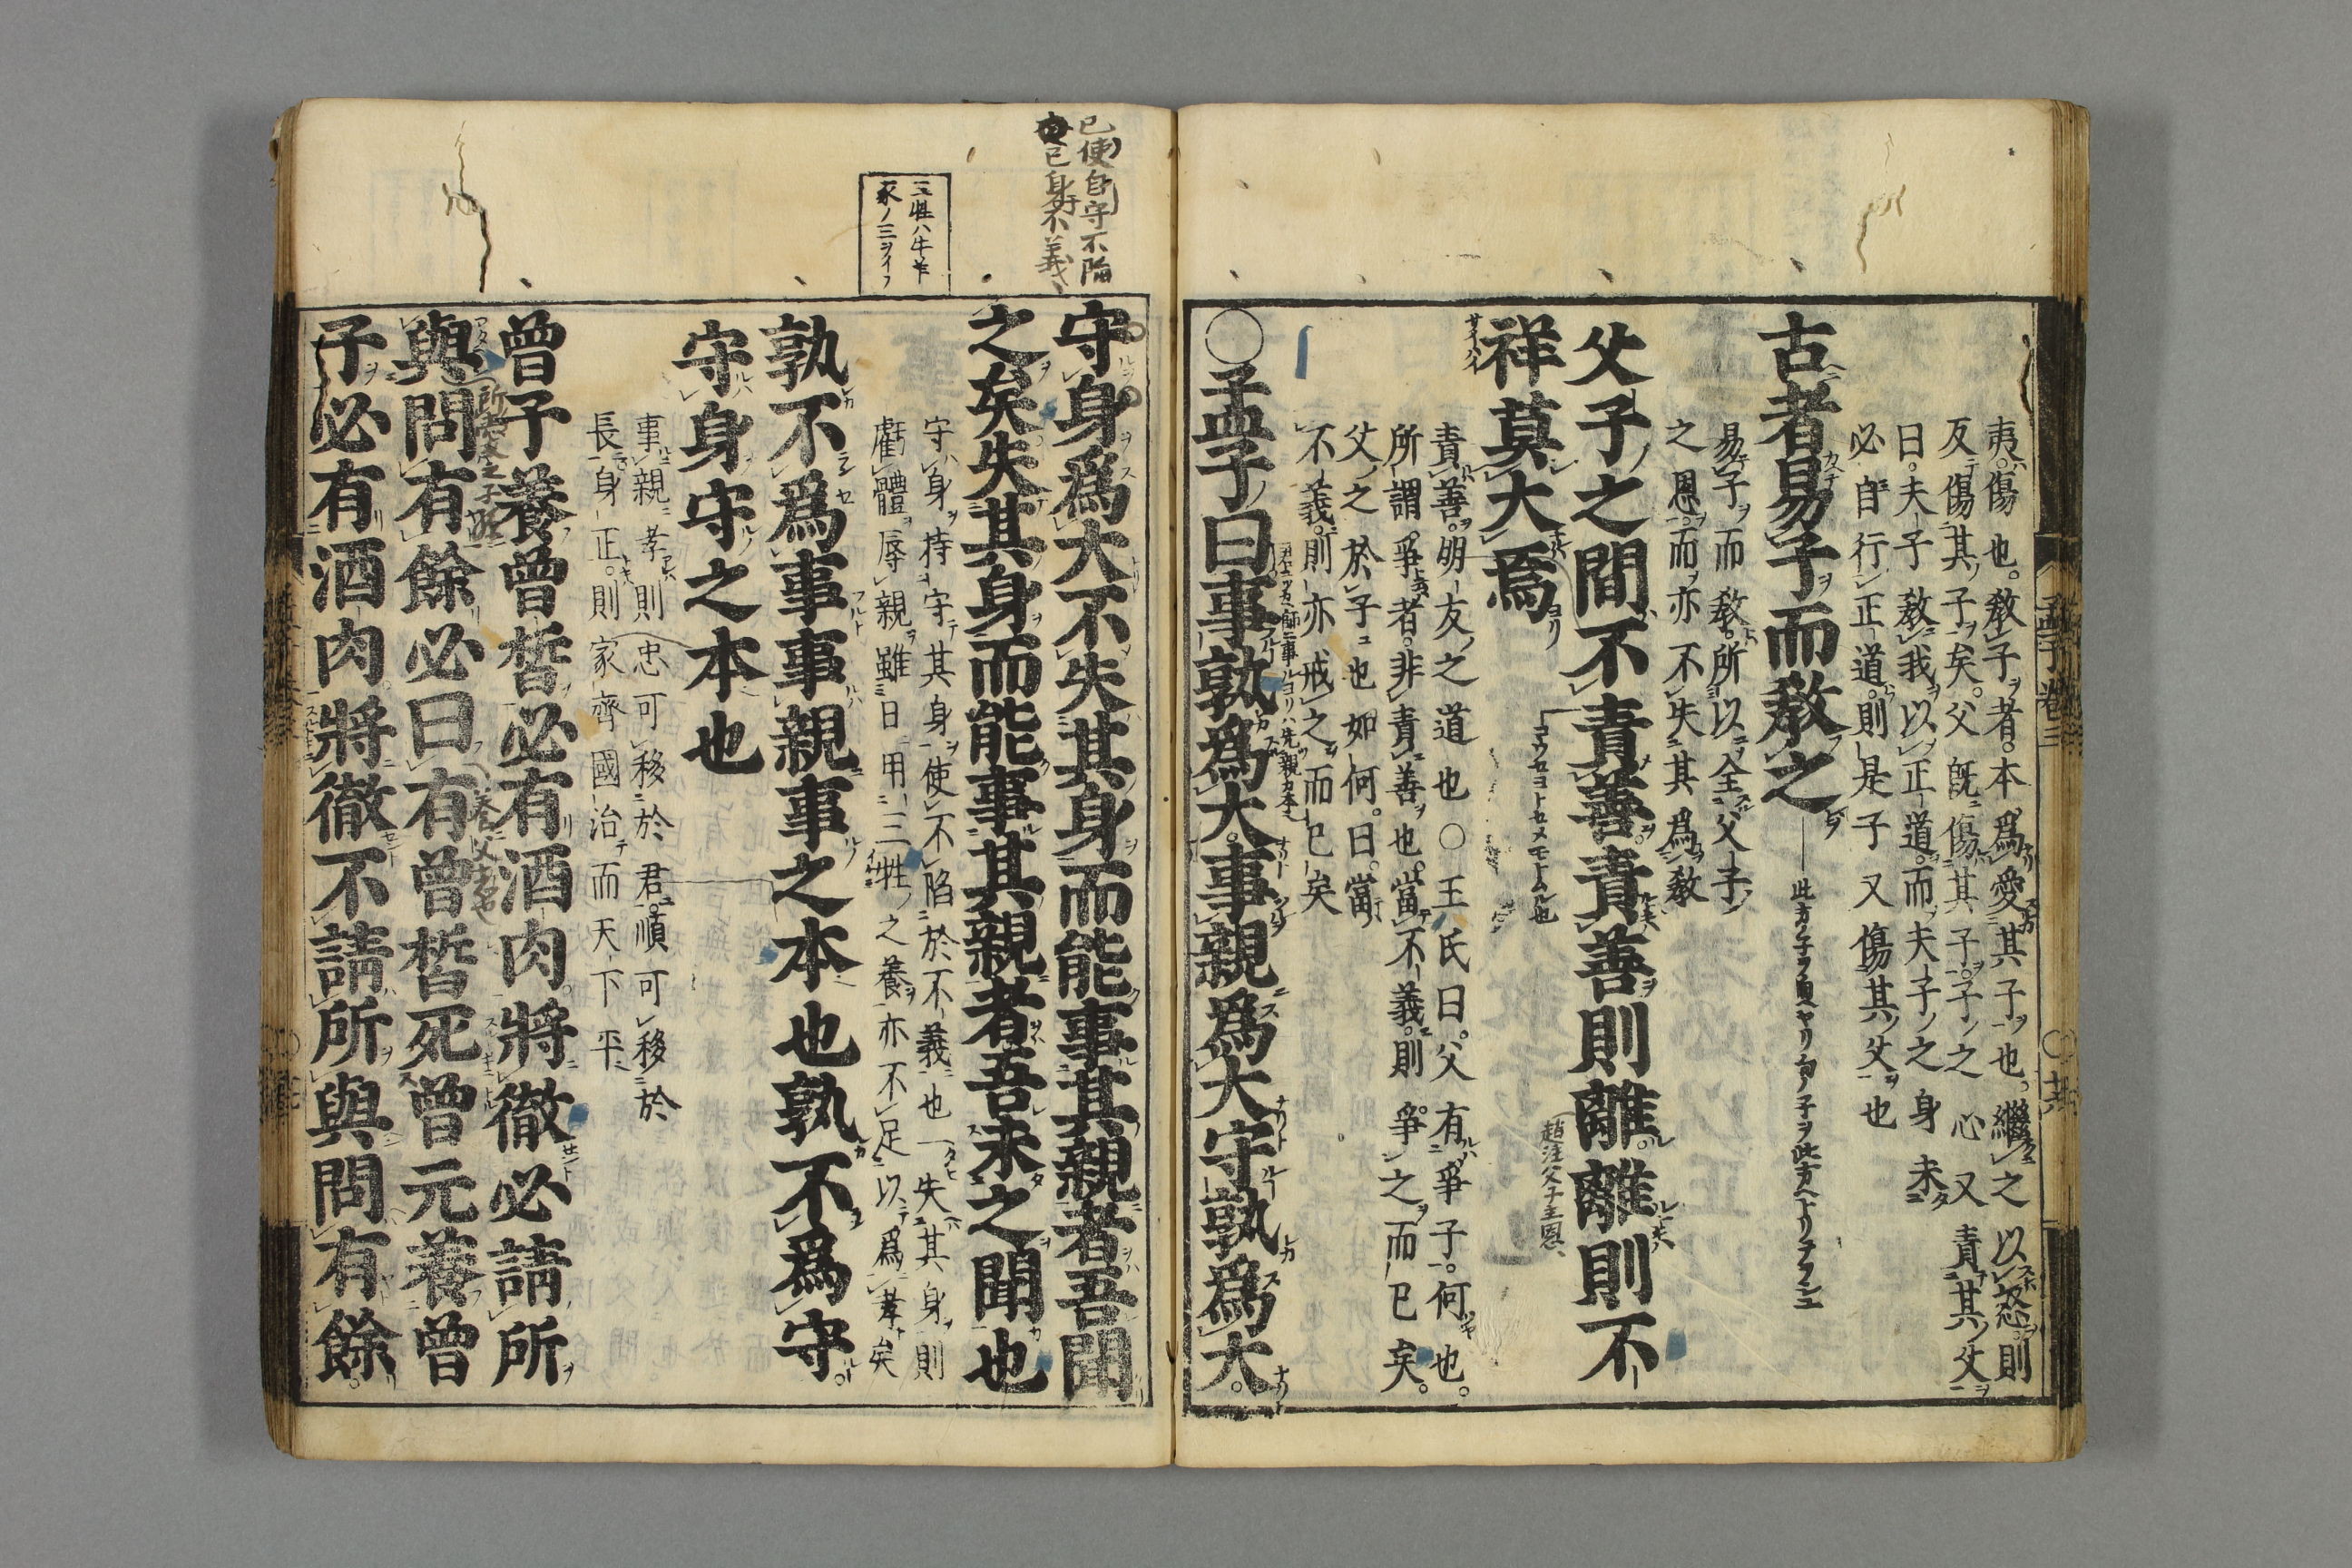 夷。傷也。敎子者。本爲愛其子也。繼之以忿。則
反傷其子矣。父旣傷其子。子之心又責其父
曰。夫子敎我以正道。而夫子之身未
必自行正道。則是子又傷其父也
古者易子而敎之
易子而敎。所以全父子
之恩。而亦不失其爲敎
父子之間不責善。責善則離。離則不
祥莫大焉
責善。朋友之道也○王氏曰。父有爭子。何也。
所謂爭者。非責善也。當不義。則爭之而已矣。
父之於子也如何。曰。當
不義。則亦戒之而已矣
○孟子曰事孰爲大。事親爲大守孰爲大。
守身爲大不失其身而能事其親者吾聞
之矣失其身而能事其親者吾未之聞也
守身。持守其身。使不陷於不義也一失其身則
虧體辱親。雖日用三牲之養亦不足以爲孝矣
孰不爲事事親事之本也孰不爲守。
守身守之本也
事親孝則忠可移於君。順可移於
長。身正。則家齊國治而天下平
曾子養曾皙必有酒肉。將徹必請所
與問有餘必曰有曾皙死曾元養曾
子必有酒肉。將徹不請所與問有餘。
孟子卷三
已使自守不陷
已身行不義
三牲ハ牛羊
豕ノ三ヲイフ
趙注父子主恩